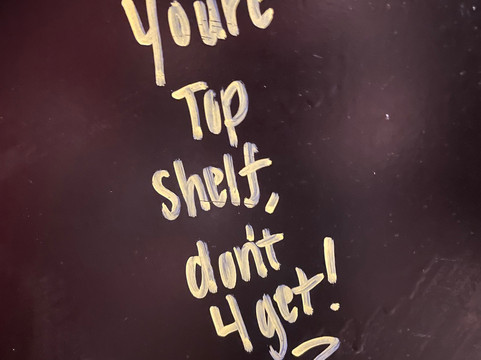 you're
Top
shelf,
don't
4get!